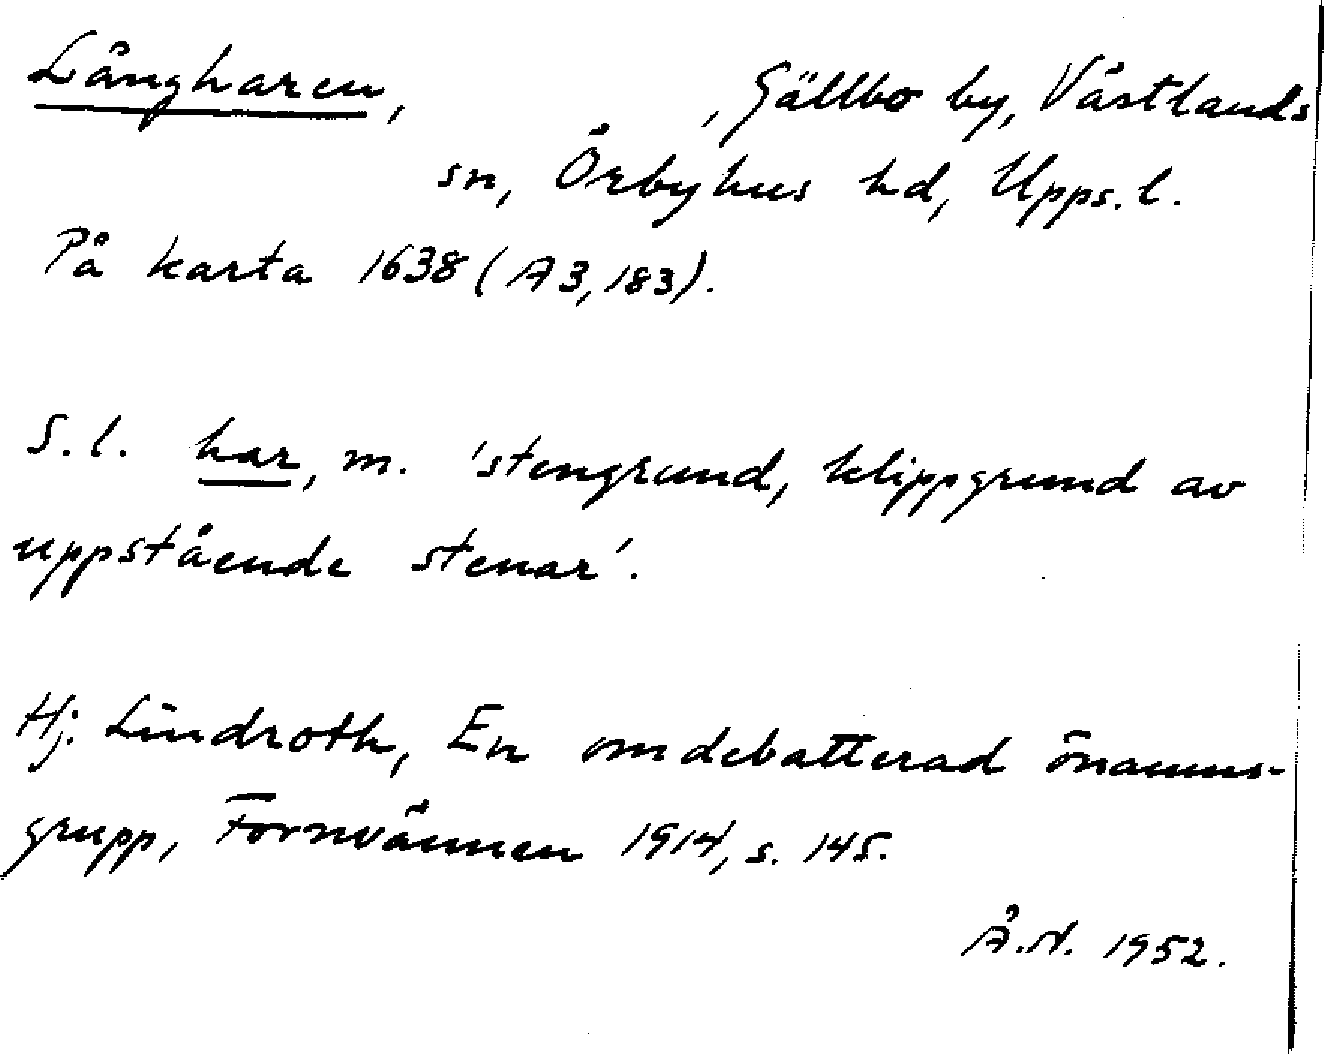 Långharen, , Gällbo by, Västlands
sn, Örbyhus hd, Upps. l.
På karta 1638 (A3, 183).
S. l. har, m. 'stengrund, klippgrund av
uppstående stenar'.
Hj. Lindroth, En omdebatterad önamns-
grupp, Fornvännen 1914, s. 145.
Å.N. 1952.